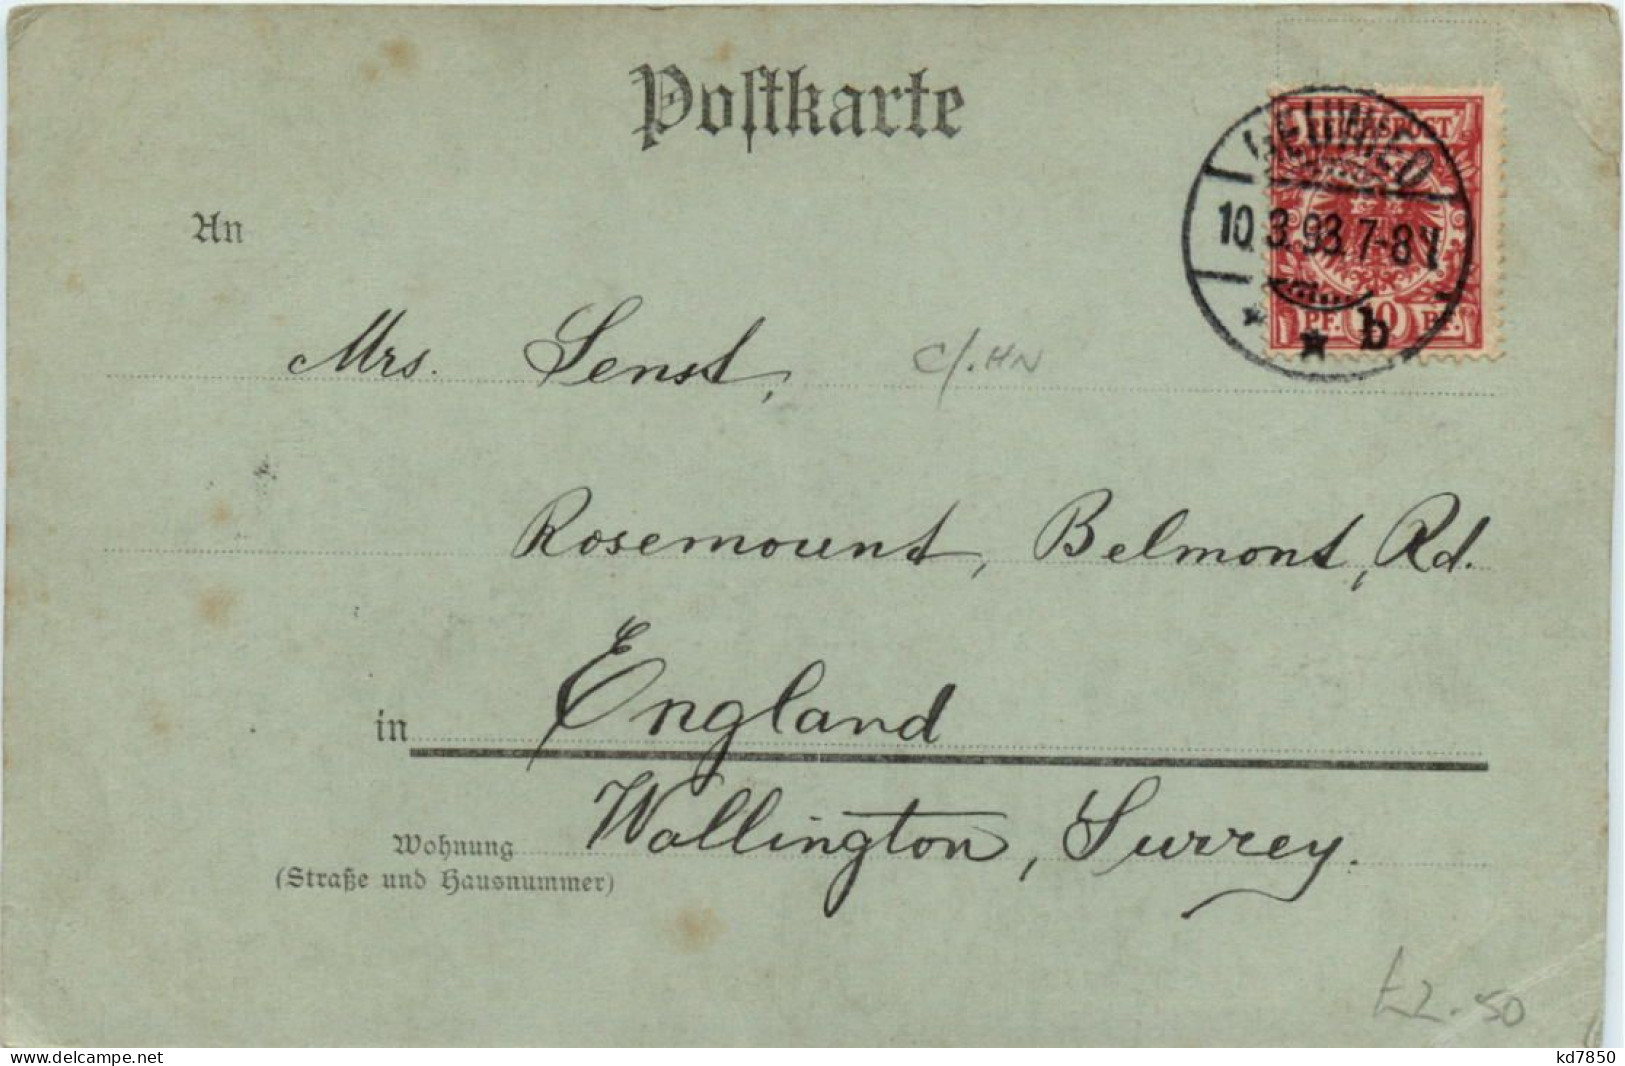 Postkarte
REICHSPOST
NEUWIED
10.3.93.7-8
PF. 10 PF.
b
An
Mrs. Senst,
c/. HN
Rosemount, Belmont, Rd.
in England
Wallington, Surrey.
Wohnung
(Straße und Hausnummer)
£2.50
www.delcampe.net
kd7850